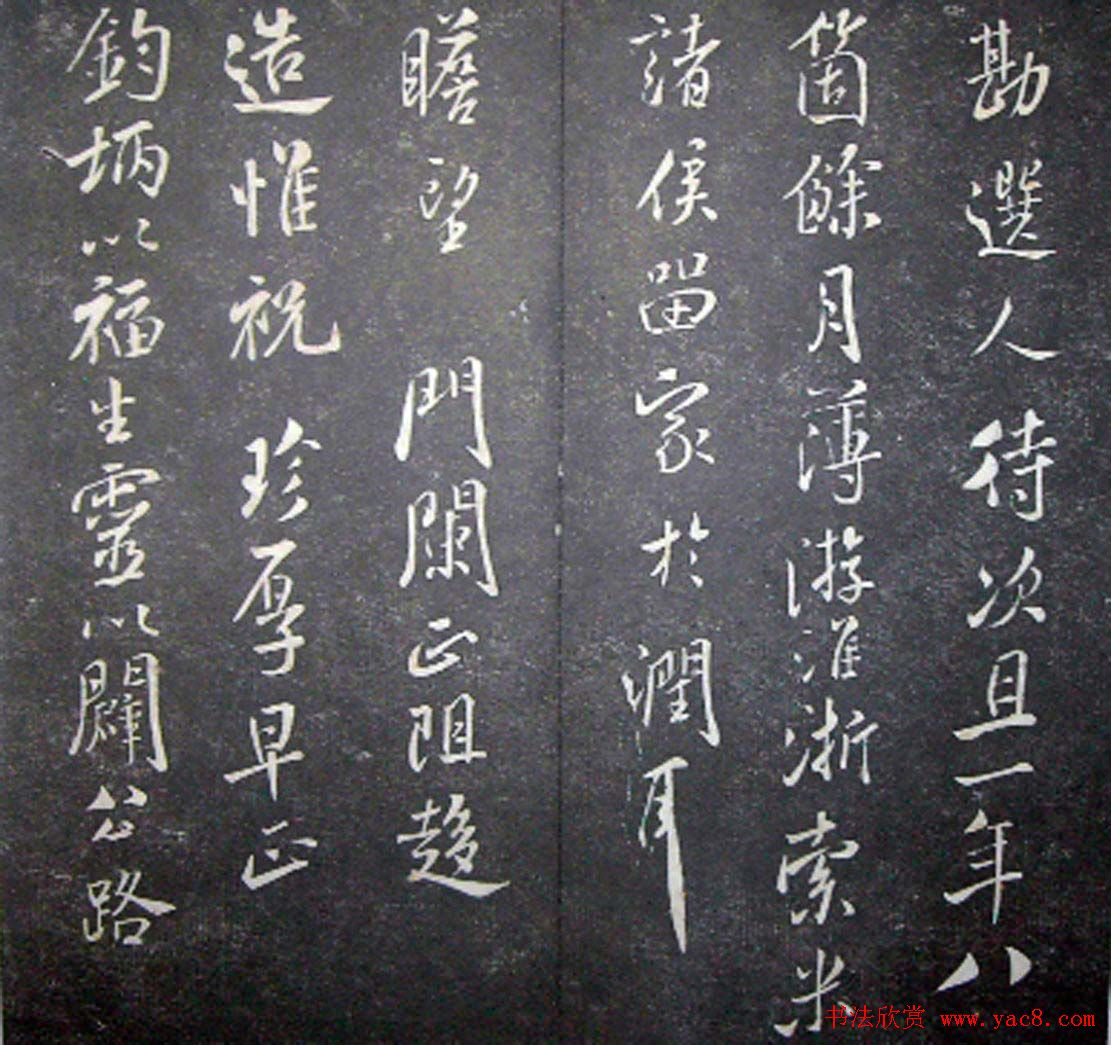 勘選人待次且一年八
箇餘月薄游淮浙索米
諸侯畱家於潤耳
瞻望 門闌正阻趍
造惟祝 珍厚早正
鈞炳以福生靈以闢公路
书法欣赏 www.yac8.com